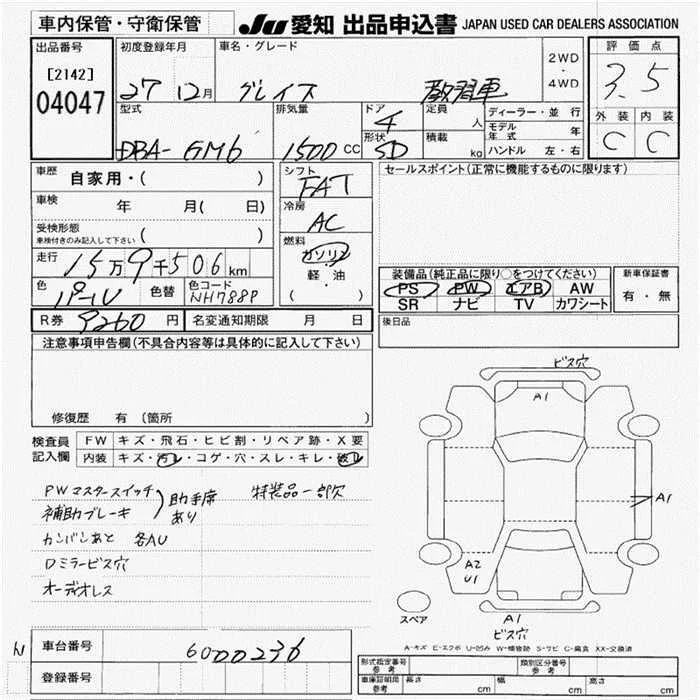 車内保管・守衛保管
JU 愛知 出品申込書 JAPAN USED CAR DEALERS ASSOCIATION
出品番号
[2142]
04047
初度登録年月
27 12月
車名・グレード
グレイス 教習車
2WD
・
4WD
評価点
3.5
外装 内装
C C
型式
DBA- GM6
排気量
1500 CC
ドア
4
形状
SD
定員
人
積載
kg
ディーラー・並行
モデル年式 年
ハンドル 左・右
車歴 自家用・( )
車検 年 月( 日)
受検形態
車検付きのみ記入して下さい ( )
走行 15万9千506km
色 パール 色替 色コード NH788P
シフト
FAT
冷房
AC
燃料
ガソリン
・
軽・油
( )
セールスポイント(正常に機能するものに限ります)
装備品(純正品に限り○をつけてください)
PS PW エアB AW
SR ナビ TV カワシート
新車保証書
有・無
後日品
R券 9260 円 名変通知期限 月 日
注意事項申告欄(不具合内容等は具体的に記入して下さい)
修復歴 有 (箇所 )
検査員記入欄
FW キズ・飛石・ヒビ割・リペア跡・X要
内装 キズ・汚レ・コゲ・穴・スレ・キレ・破レ
PWマスタースイッチ
補助ブレーキ
助手席あり
特装品一部欠
カンバンあと 各AU
Dミラービス穴
オーディオレス
ビス穴
A1
A1
A2
U1
A1
ビス穴
スペア
A-キズ E-エクボ U-凹み W-補修跡 S-サビ C-腐食 XX-交換済
車台番号 6000236
登録番号
型式指定番号
参考
類別区分番号
参考
車庫証明用
参考
長さ cm
幅 cm
高さ cm